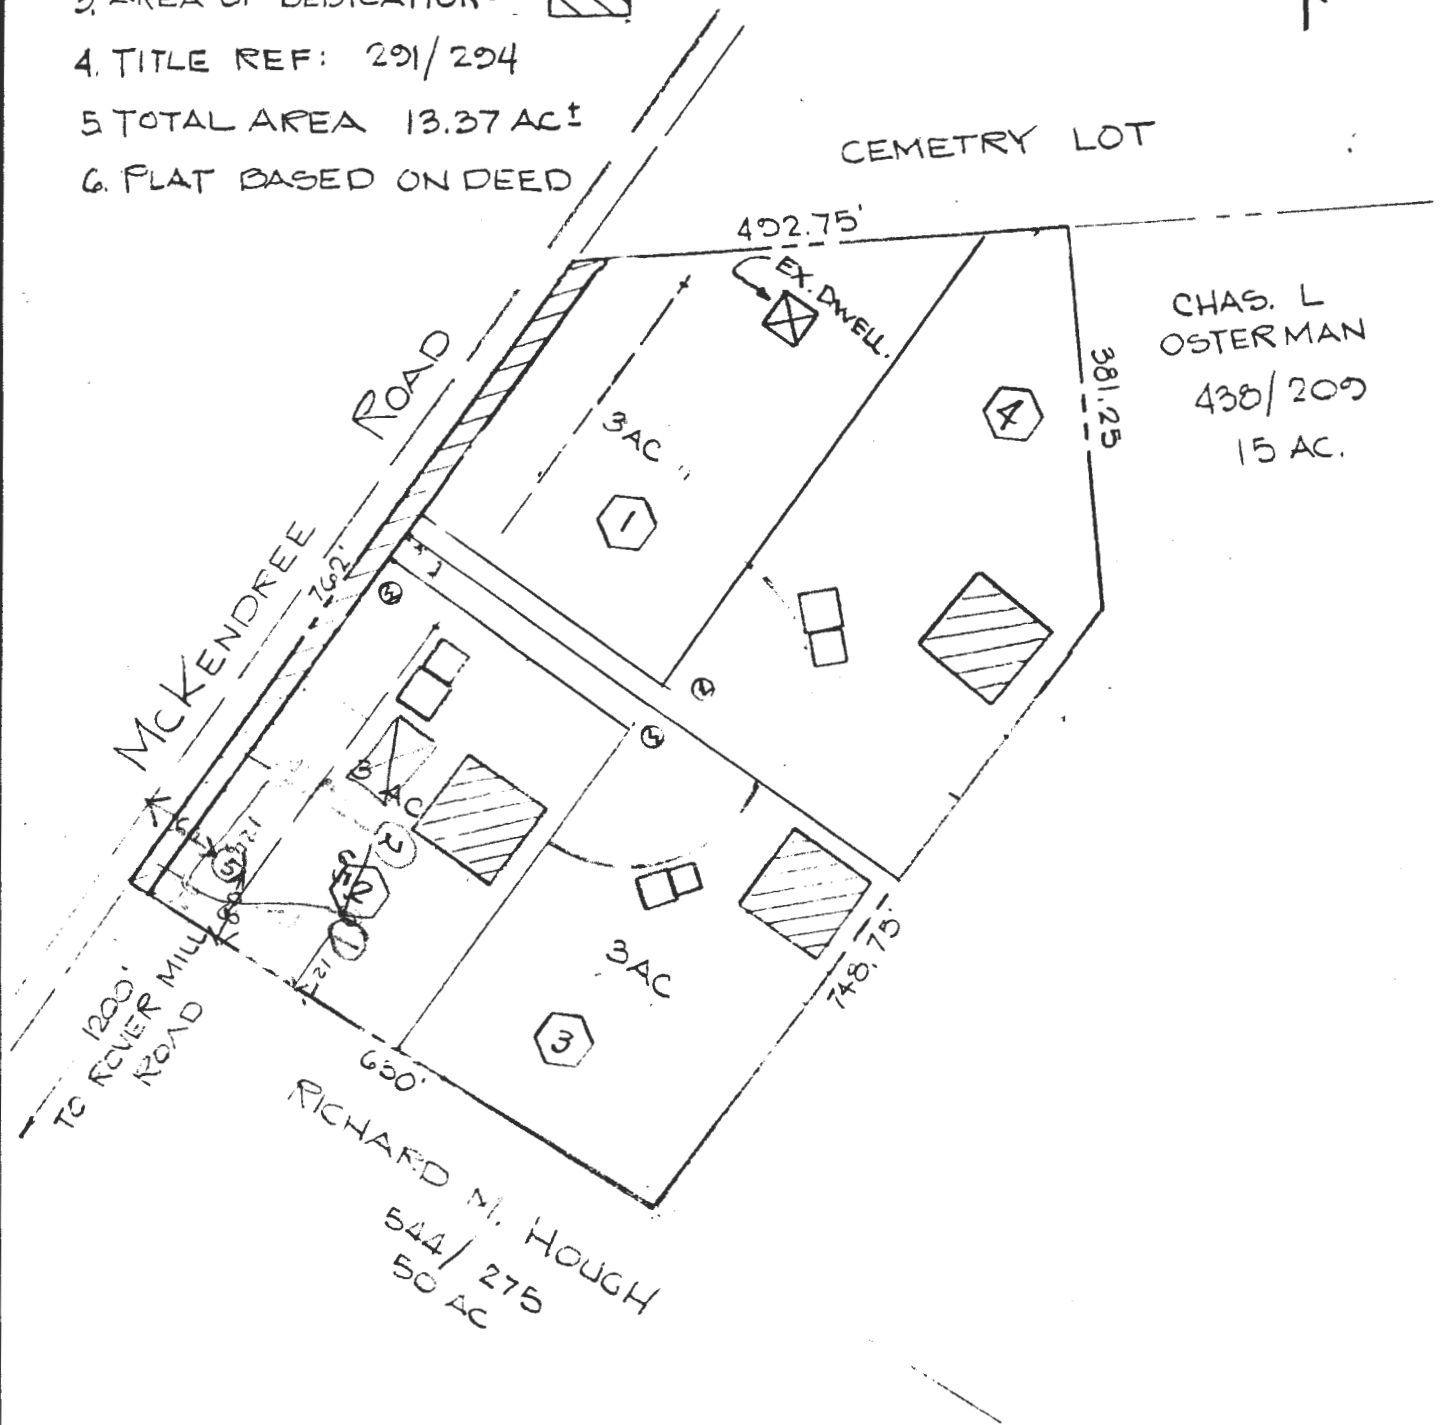 3. AREA OF DEDICATION
4. TITLE REF: 291/294
5 TOTAL AREA 13.37 AC±
6. PLAT BASED ON DEED
CEMETRY LOT
492.75'
EX. DWELL.
CHAS. L
OSTERMAN
438/209
15 AC.
381.25
4
3 AC
1
McKENDREE ROAD
762'
3
2
3
3 AC
2
2
5
1
121
121
3 AC
3
748.75'
650'
1200'
TO ROVER MILL
ROAD
RICHARD M. HOUGH
544/275
50 AC